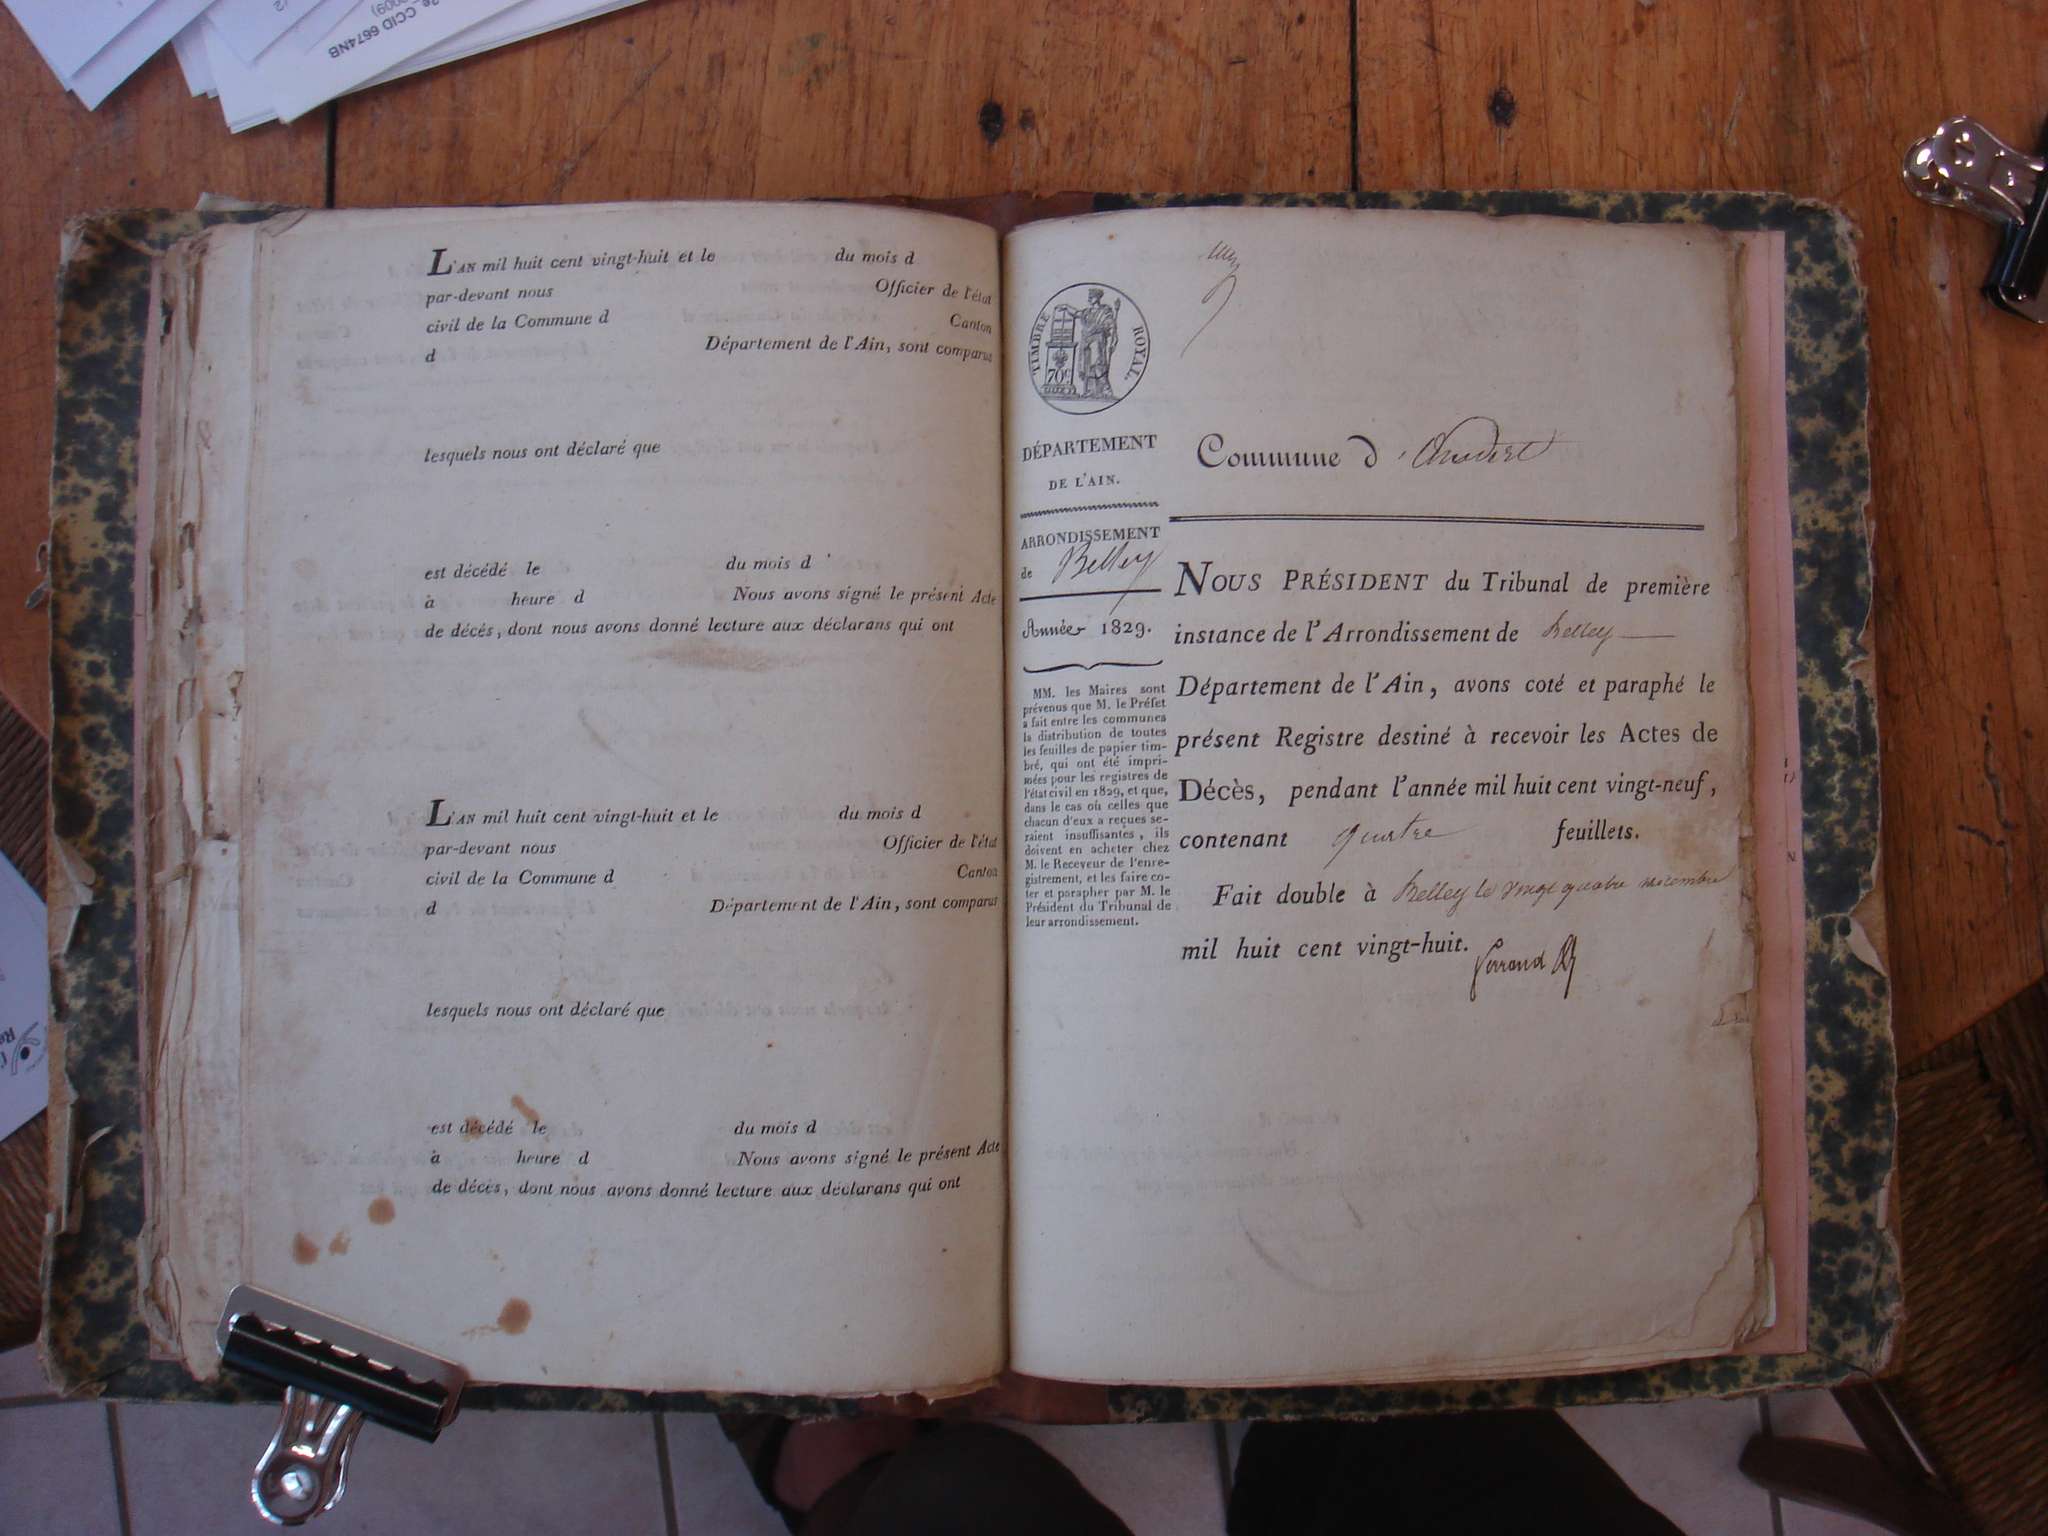 2e CCID 6674NB
2009)
L'AN mil huit cent vingt-huit et le du mois d
par-devant nous Officier de l'état
civil de la Commune d Canton
d Département de l'Ain, sont comparus
lesquels nous ont déclaré que
est décédé le du mois d
à heure d Nous avons signé le présent Acte
de décés, dont nous avons donné lecture aux déclarans qui ont
L'AN mil huit cent vingt-huit et le du mois d
par-devant nous Officier de l'état
civil de la Commune d Canton
d Département de l'Ain, sont comparus
lesquels nous ont déclaré que
est décédé le du mois d
à heure d Nous avons signé le présent Acte
de décès, dont nous avons donné lecture aux déclarans qui ont
TIMBRE ROYAL.
70c
DÉPARTEMENT
DE L'AIN.
ARRONDISSEMENT
de Belley
Année 1829.
MM. les Maires sont
prévenus que M. le Préfet
a fait entre les communes
la distribution de toutes
les feuilles de papier tim-
bré, qui ont été impri-
mées pour les registres de
l'état civil en 1829, et que,
dans le cas où celles que
chacun d'eux a reçues se-
raient insuffisantes, ils
doivent en acheter chez
M. le Receveur de l'enre-
gistrement, et les faire co-
ter et parapher par M. le
Président du Tribunal de
leur arrondissement.
Commune d
NOUS PRÉSIDENT du Tribunal de première
instance de l'Arrondissement de Belley
Département de l'Ain, avons coté et paraphé le
présent Registre destiné à recevoir les Actes de
Décès, pendant l'année mil huit cent vingt-neuf,
contenant quatre feuillets.
Fait double à Belley le vingt quatre
mil huit cent vingt-huit.